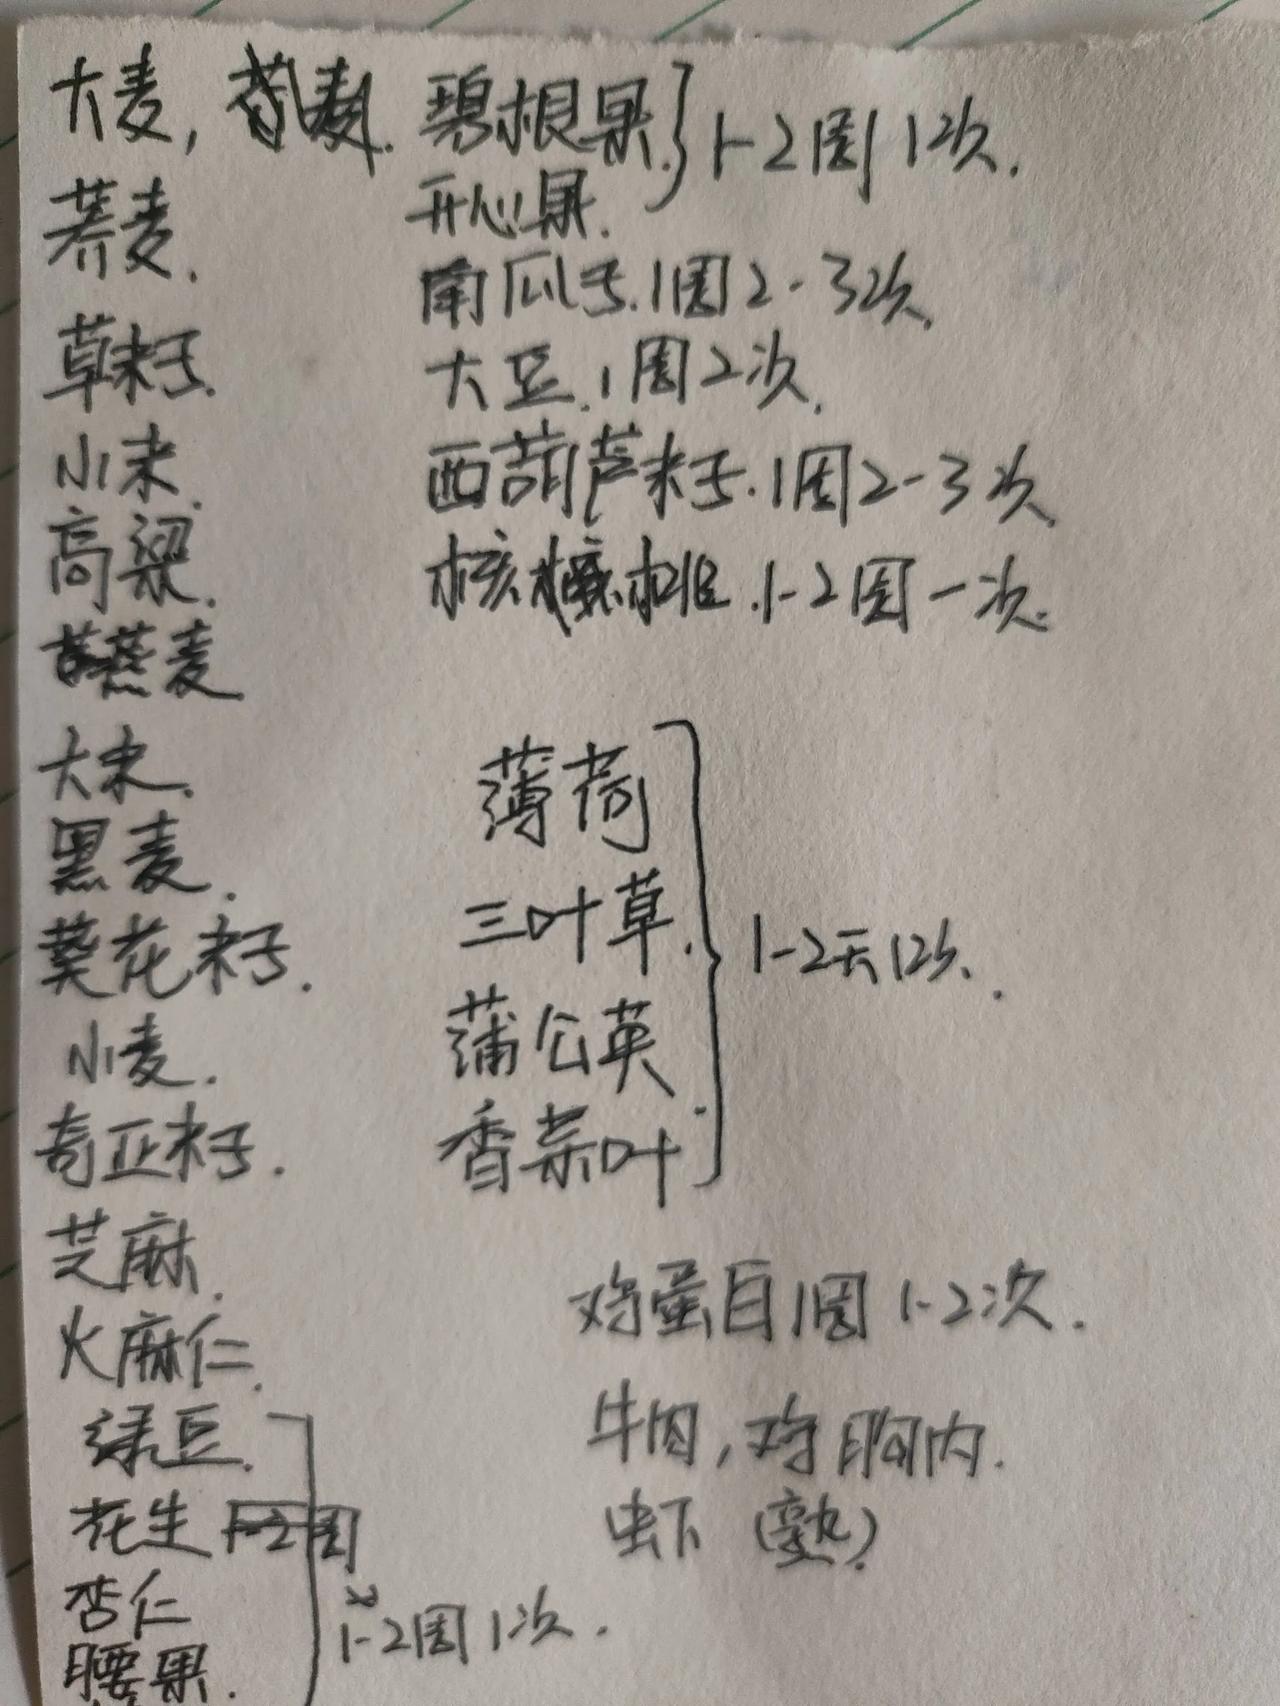 大麦,
荞麦.
草籽.
小米.
高粱.
燕麦
大米.
黑麦.
葵花籽.
小麦.
奇亚籽.
芝麻.
火麻仁.
绿豆.
花生
杏仁
腰果.
1-2周1次.
碧根果.
开心果.
1-2周1次.
南瓜子.1周2-3次.
大豆.1周2次.
西葫芦籽.1周2-3次.
核桃.1-2周一次.
薄荷
三叶草.
蒲公英.
香菜叶
1-2天1次.
鸡蛋白1周1-2次.
牛肉,鸡胸肉.
虾(熟)